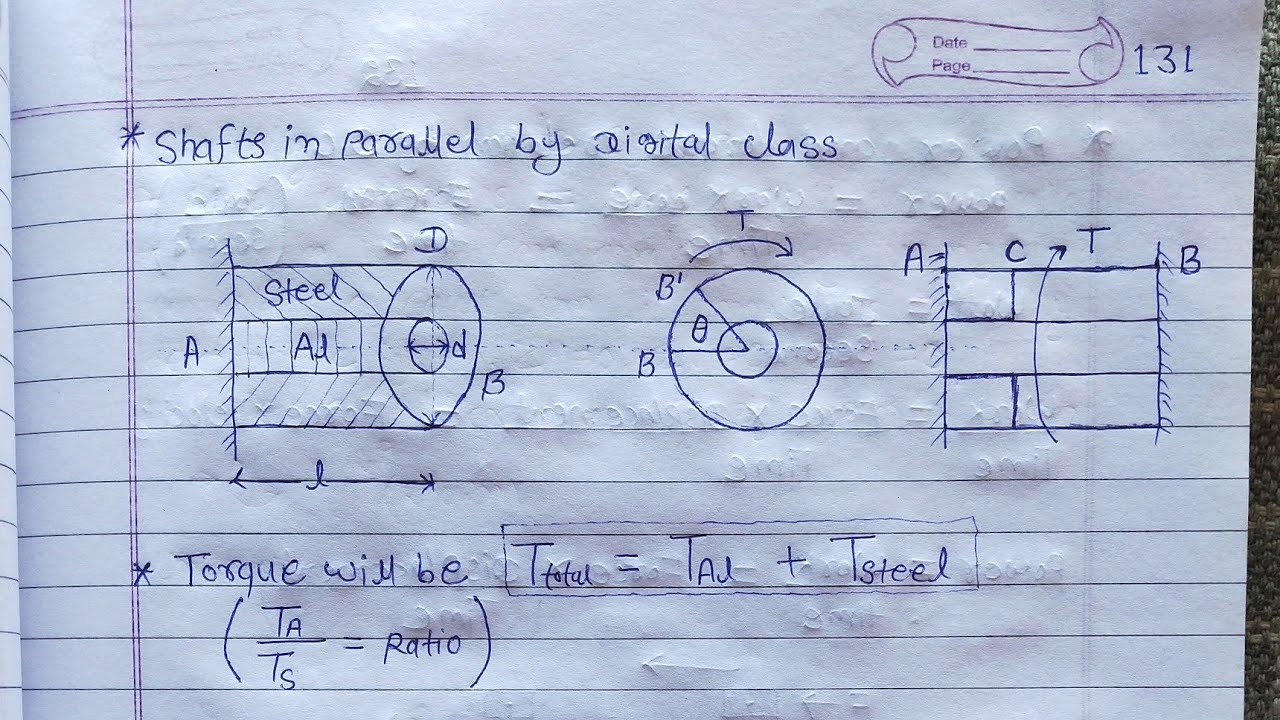 Date
Page
131
* Shafts in parallel by digital class
D
T
A C T B
Steel
B'
A Al d
θ
B
B
l
* Torque will be T total = T Al + T Steel
( T A / T S = Ratio )